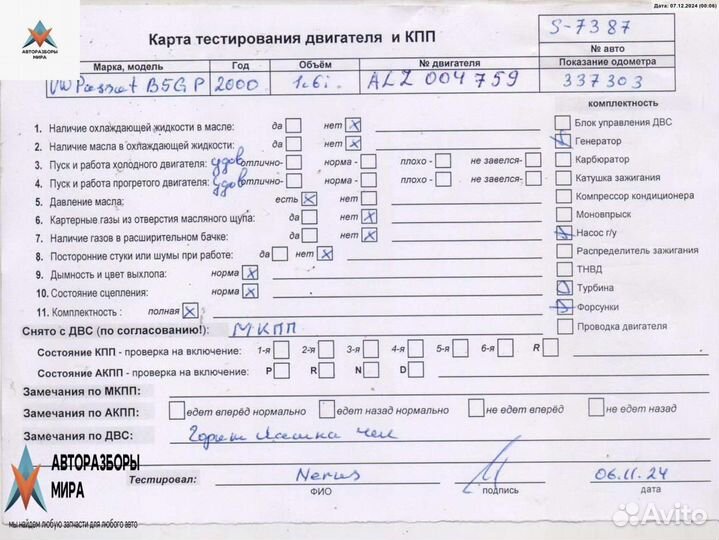 Дата: 07.12.2024 (00:06)
АВТОРАЗБОРЫ
МИРА
Карта тестирования двигателя и КПП
S-7387
№ авто
Марка, модель Год Объём № двигателя Показание одометра
VW Passat B5GP 2000 1.6i ALZ 004759 337303
комплектность
1. Наличие охлаждающей жидкости в масле: да нет
Блок управления ДВС
2. Наличие масла в охлаждающей жидкости: да нет
Генератор
3. Пуск и работа холодного двигателя: удов отлично- норма - плохо - не завелся-
Карбюратор
4. Пуск и работа прогретого двигателя: удов отлично- норма - плохо - не завелся-
Катушка зажигания
5. Давление масла: есть нет
Компрессор кондиционера
6. Картерные газы из отверстия масляного щупа: да нет
Моновпрыск
7. Наличие газов в расширительном бачке: да нет
Насос г/у
8. Посторонние стуки или шумы при работе: да нет
Распределитель зажигания
9. Дымность и цвет выхлопа: норма
ТНВД
10. Состояние сцепления: норма
Турбина
11. Комплектность : полная
Форсунки
Снято с ДВС (по согласованию!): МКПП
Проводка двигателя
Состояние КПП - проверка на включение: 1-я 2-я 3-я 4-я 5-я 6-я R
Состояние АКПП - проверка на включение: P R N D
Замечания по МКПП:
Замечания по АКПП: едет вперёд нормально едет назад нормально не едет вперёд не едет назад
Замечания по ДВС: Горит лампа чек
АВТОРАЗБОРЫ
МИРА
Тестировал: 06.11.24
ФИО подпись дата
мы найдем любую запчасти для любого авто
Avito